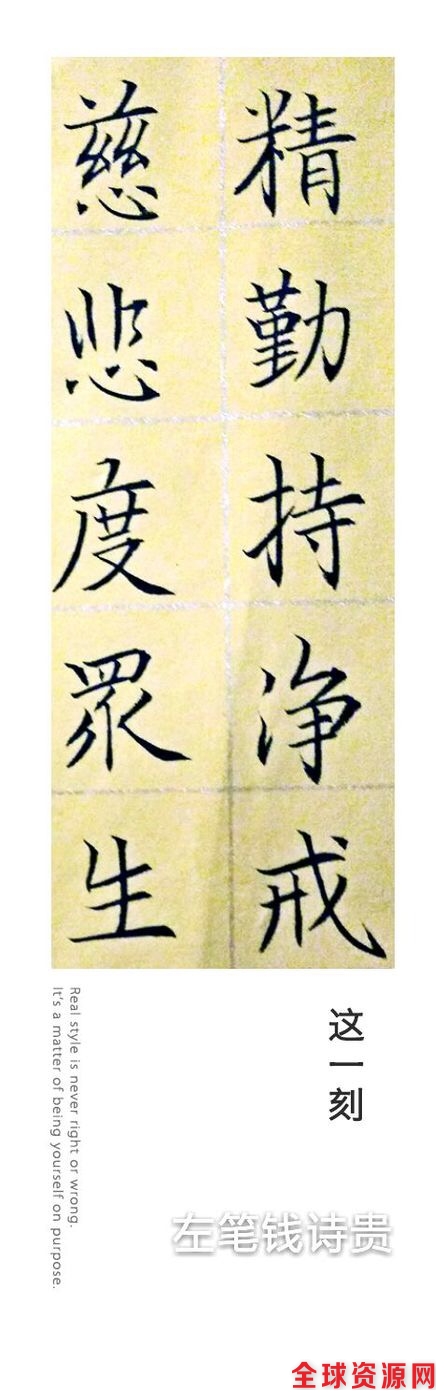 精勤持净戒
慈悲度眾生
这一刻
Real style is never right or wrong.
It's a matter of being yourself on purpose.
左笔钱诗贵
全球资源网